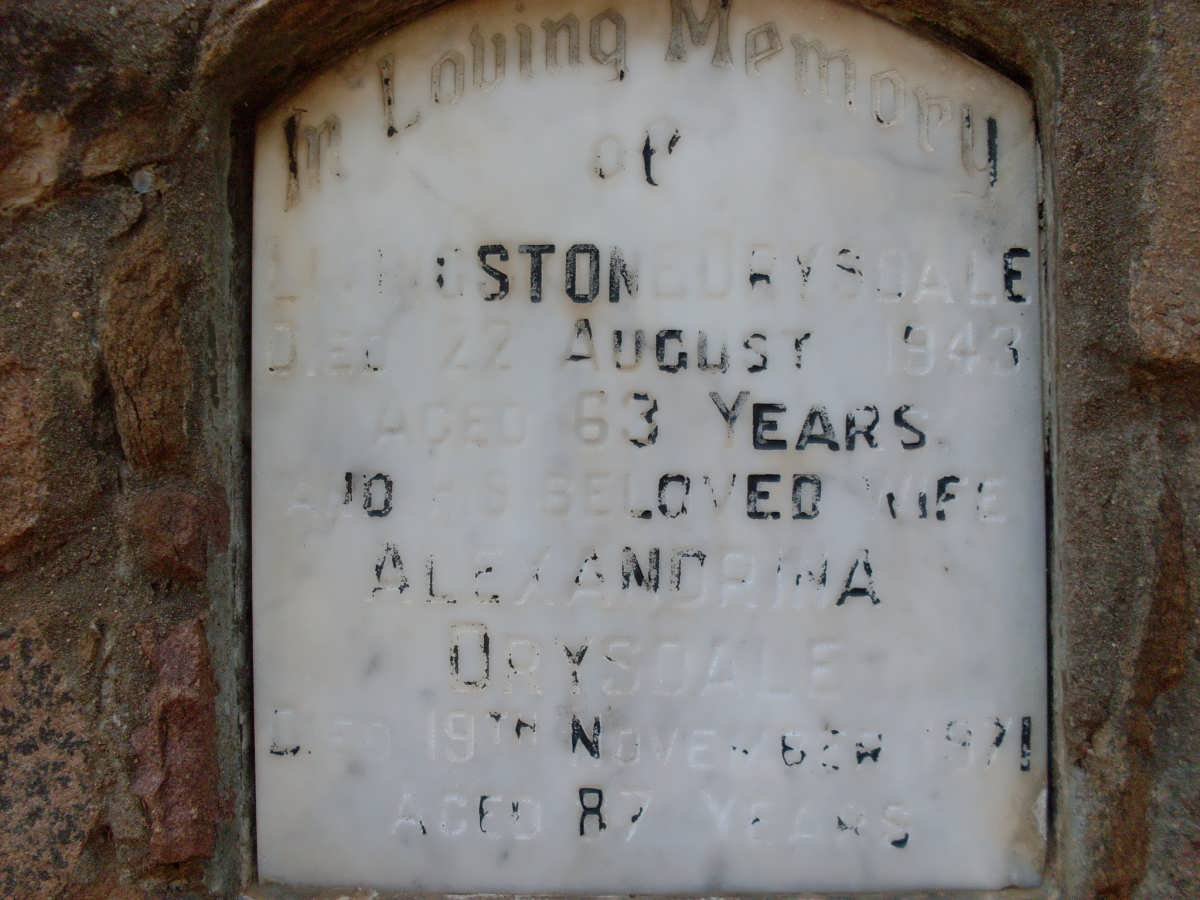 In Loving Memory
of
LIVINGSTONE DRYSDALE
DIED 22 AUGUST 1943
AGED 63 YEARS
AND HIS BELOVED WIFE
ALEXANDRINA
DRYSDALE
DIED 19TH NOVEMBER 1971
AGED 87 YEARS